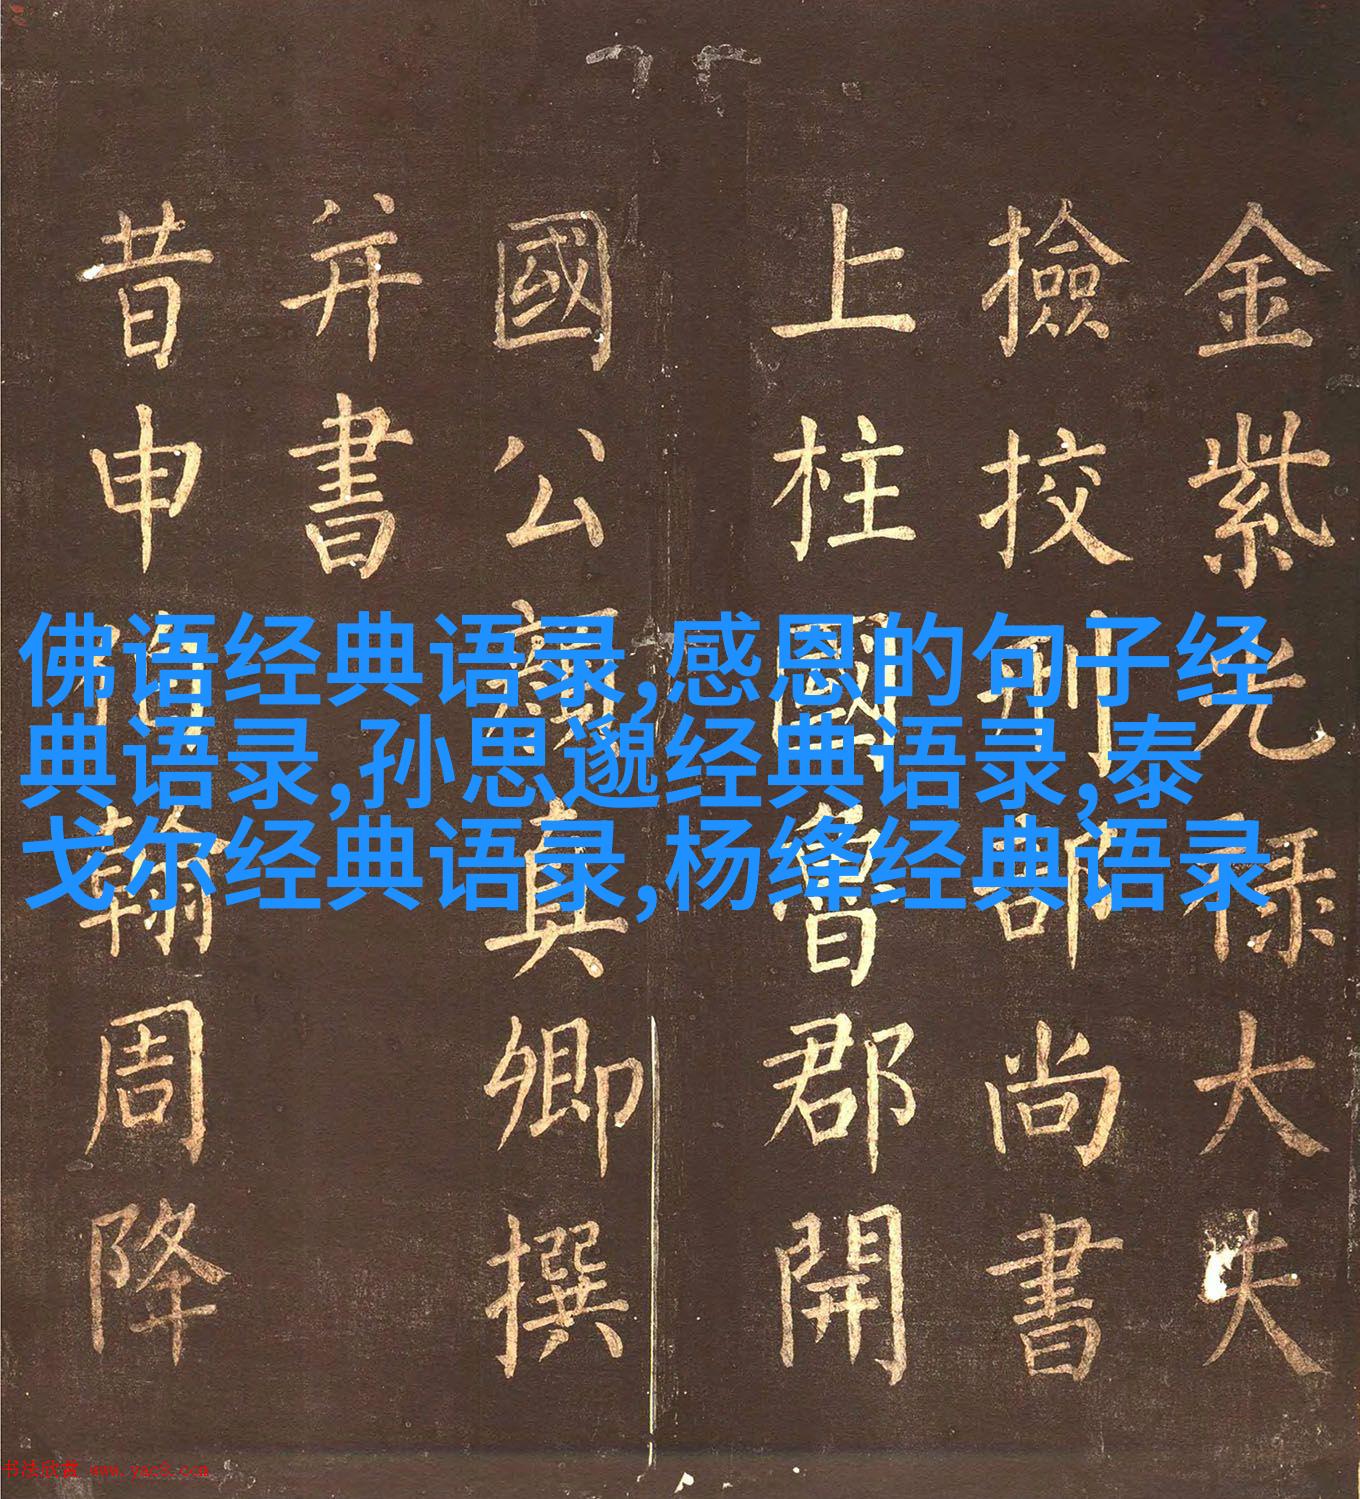 金紫光禄大夫
撿挍刑部尚書
上柱國魯郡開
國公顏真卿撰
并書
昔申伯翰周降
佛语经典语录,感恩的句子经
典语录,孙思邈经典语录,泰
戈尔经典语录,杨绛经典语录
书法欣赏 www.yac8.com